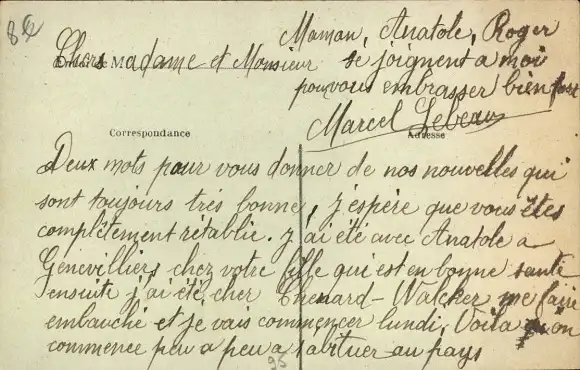 82
Maman, Anatole, Roger
Chers Madame et Monsieur se joignent a moi
pour vous embrasser bien fort
Marcel Lebeau
Correspondance
Adresse
Deux mots pour vous donner de nos nouvelles qui
sont toujours très bonne, j'espère que vous êtes
complètement rétablie. j'ai été avec Anatole a
Genevilliers chez votre fille qui est en bonne santé
ensuite j'ai été cher Chenard-Walcker me faire
embauché et je vais commencer lundi, Voila on
commence peu a peu a s'abituer au pays